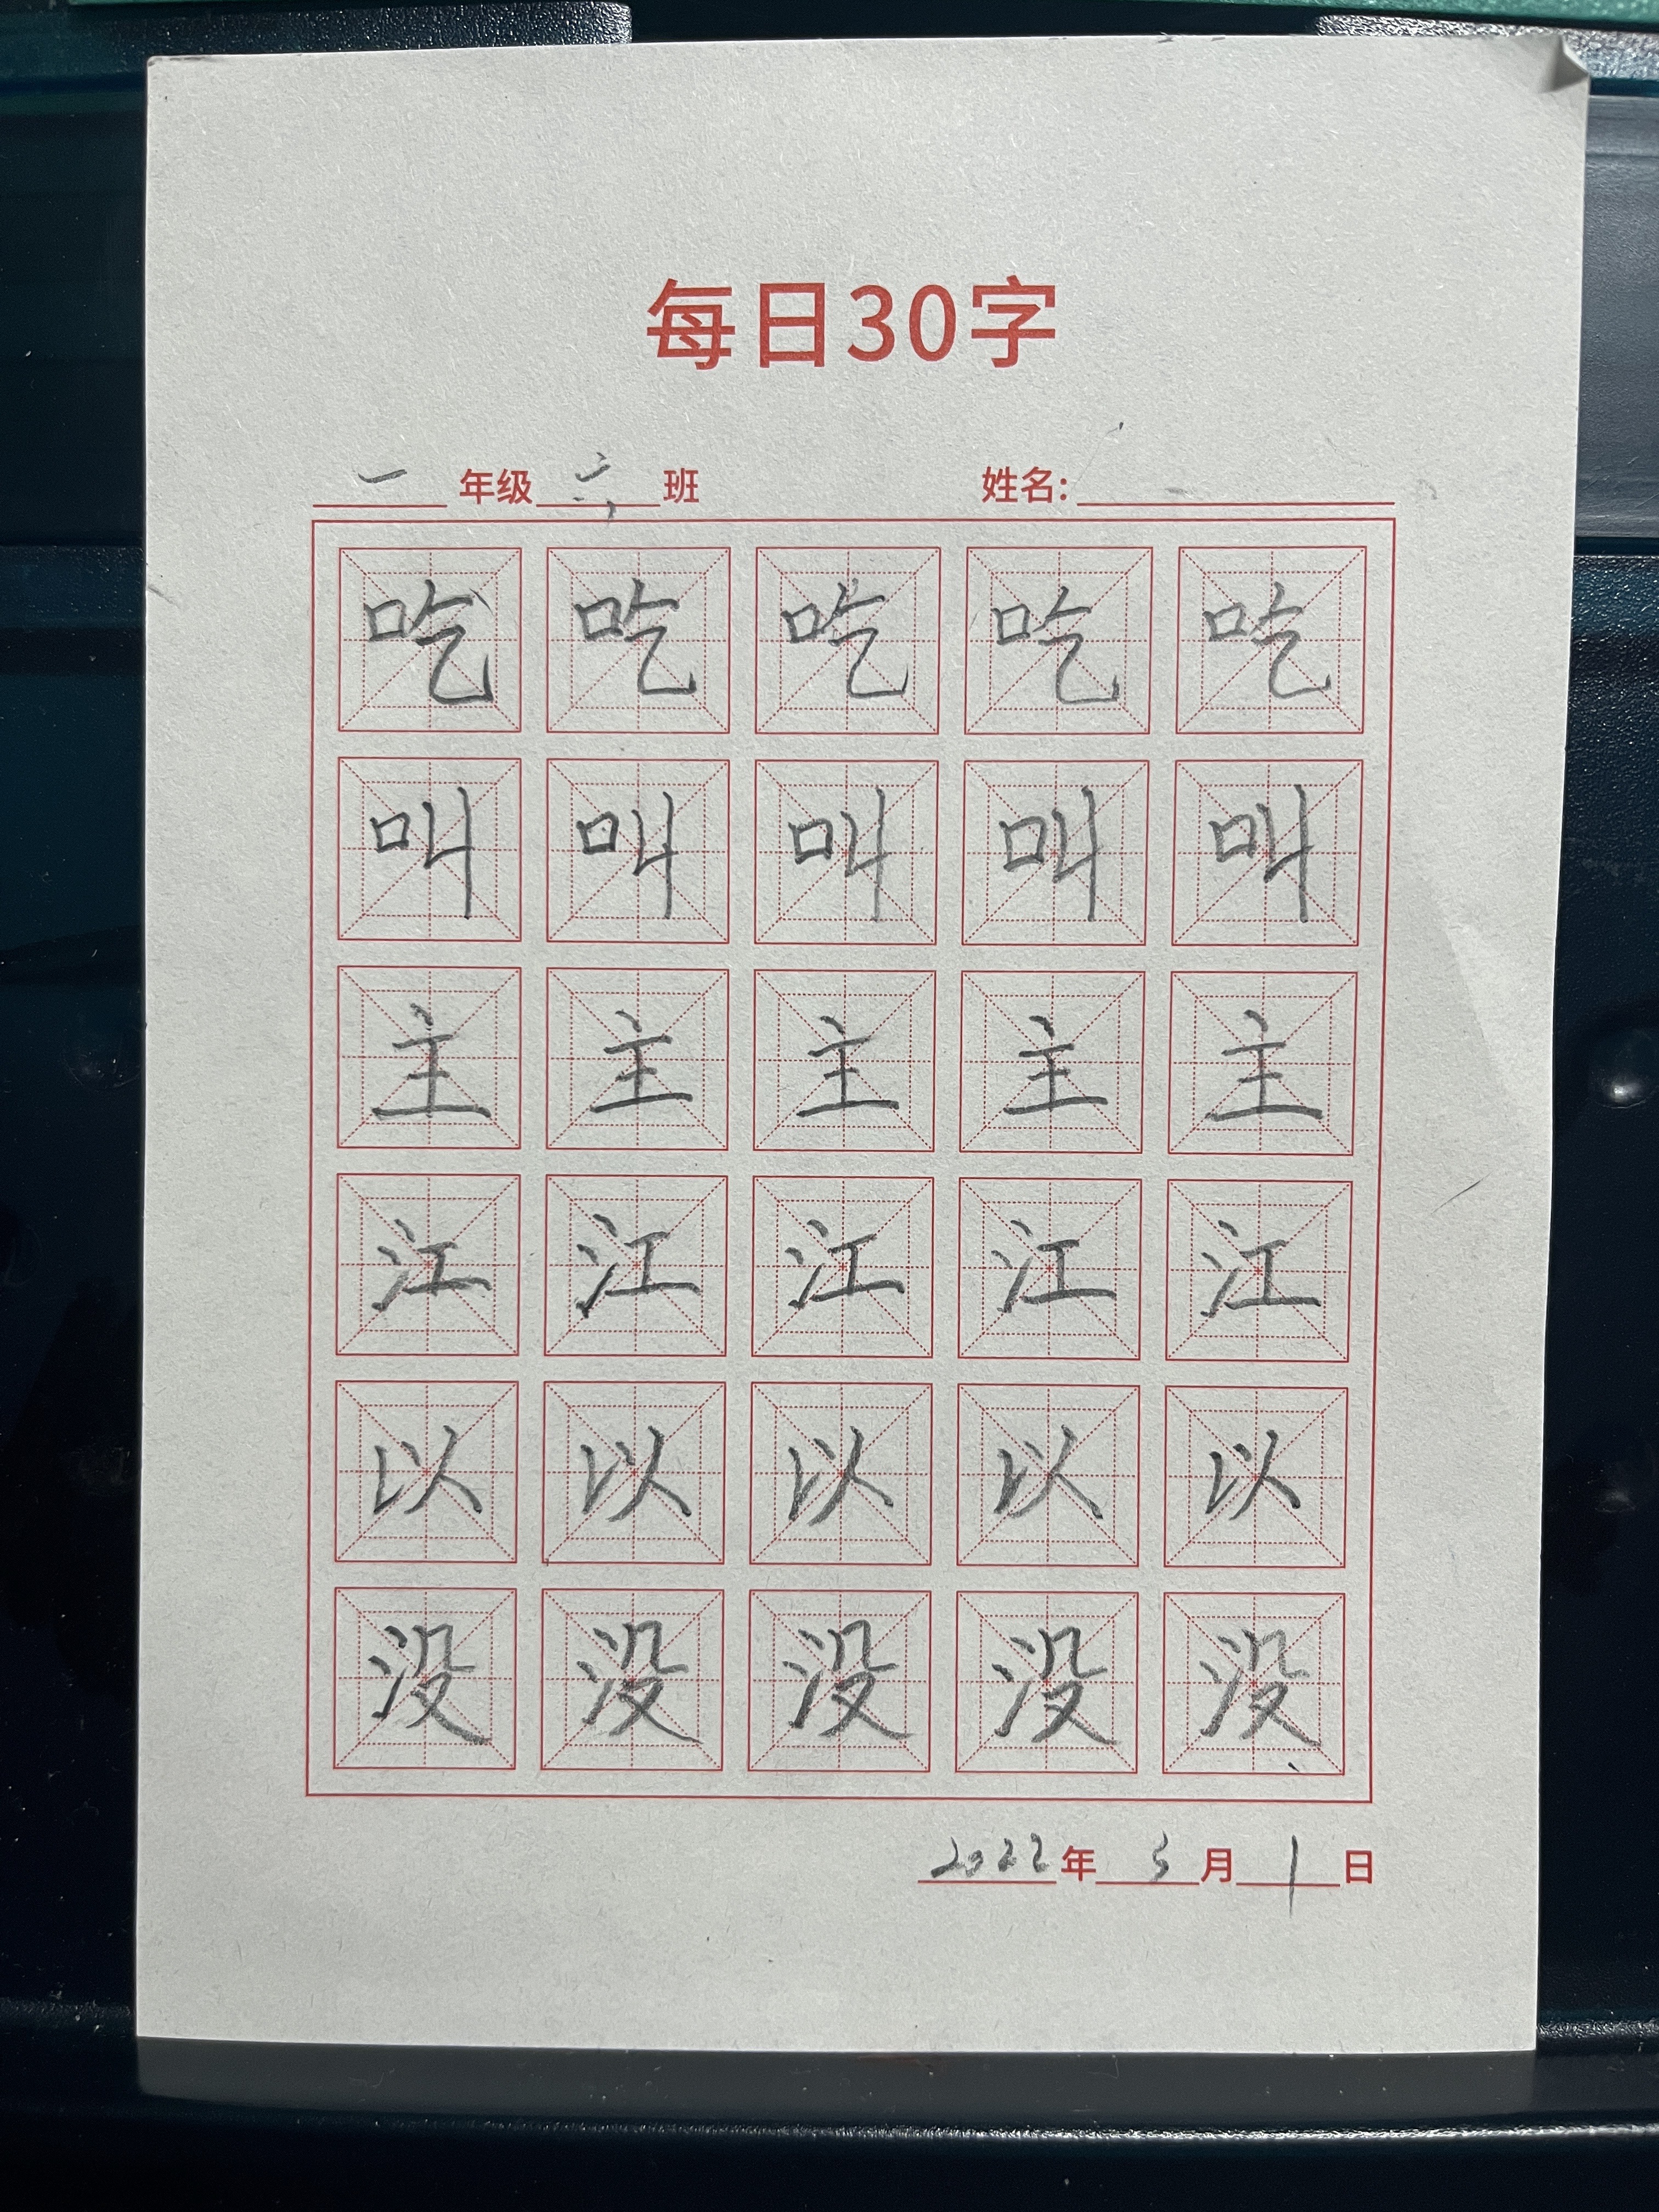 每日30字
一年级六班 姓名:
吃吃吃吃吃
叫叫叫叫叫
主主主主主
江江江江江
以以以以以
没没没没没
2022年3月1日